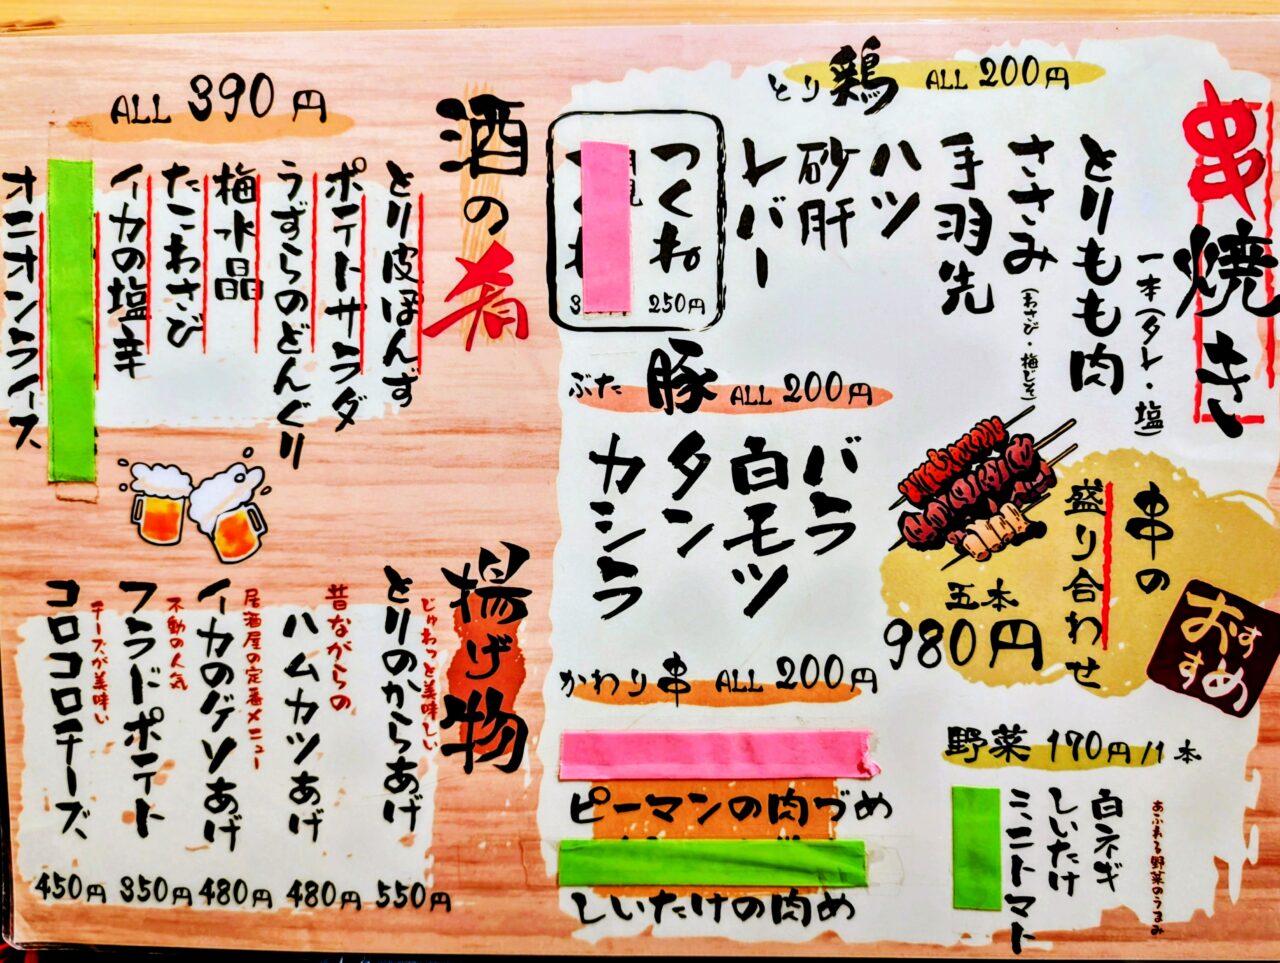 串焼き
一本(タレ・塩)
とり鶏 ALL 200円
とりもも肉
ささみ
(わさび・梅じそ)
手羽先
ハツ
砂肝
レバー
つくね
250円
串の
盛り合わせ
五本
980円
おすすめ
ぶた 豚 ALL 200円
バラ
白モツ
タン
カシラ
かわり串 ALL 200円
ピーマンの肉づめ
しいたけの肉め
野菜 170円/1本
あふれる野菜のうまみ
白ネギ
しいたけ
ミニトマト
酒の肴
ALL 390円
とり皮ぽんず
ポテトサラダ
うずらのどんぐり
梅水晶
たこわさび
イカの塩辛
オニオンライス
揚げ物
じゅわっと美味しい
とりのからあげ
550円
昔ながらの
ハムカツあげ
480円
居酒屋の定番メニュー
イカのゲソあげ
480円
不動の人気
フラドポテト
350円
チーズが美味い
コロコロチーズ
450円